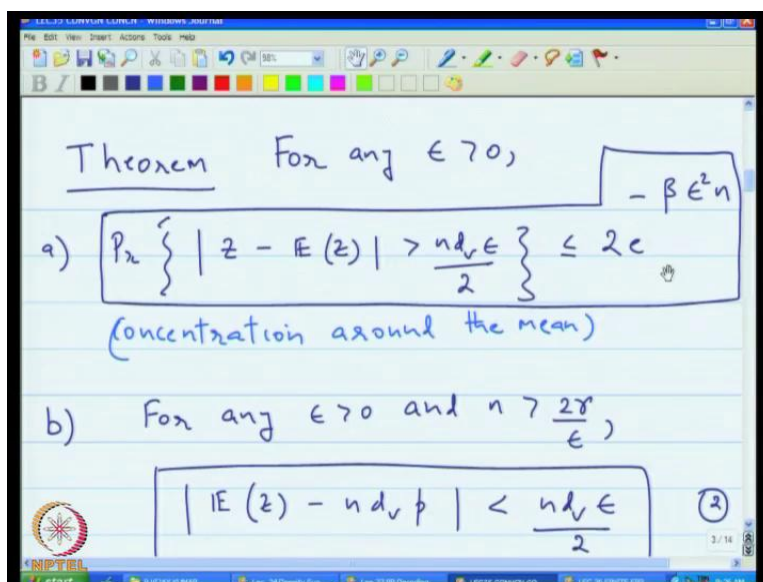 LEC35 CONVGN CONCN - Windows Journal
File Edit View Insert Actions Tools Help
58%
B I
Theorem For any ϵ > 0,
a) Pr { | Z - E(Z) | > n d_v ϵ / 2 } ≤ 2 e^{- β ϵ² n}
(concentration around the mean)
b) For any ϵ > 0 and n > 2γ / ϵ,
| E(Z) - n d_v p | < n d_v ϵ / 2 (2)
3/14
NPTEL
start